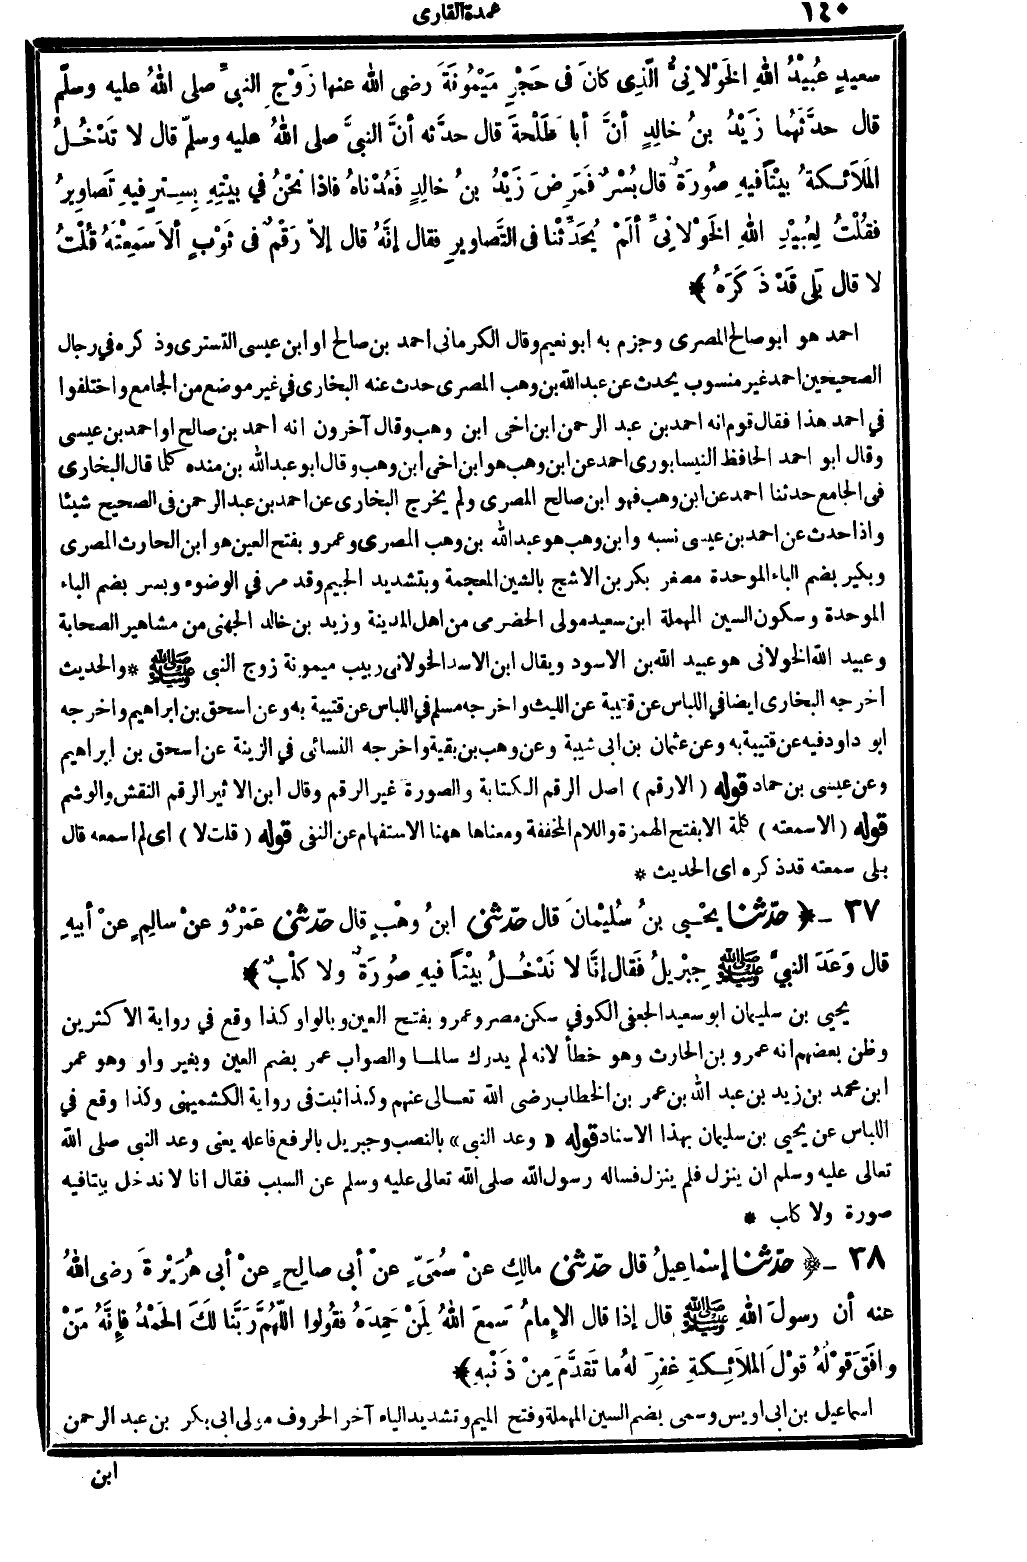 ١٤٠
عمدة القارى
سعيدٍ عُبيْدُ اللهِ الخَوْلانِيُّ الَّذِى كانَ فى حَجْرِ مَيْمُونَةَ رضى الله عنها زَوْجِ النبيِّ صلى اللهُ عليه وسلّم
قال حدَّثَهُما زَيْدُ بنُ خالِدٍ أنَّ أبا طَلْحَةَ قال حدَّثه أنَّ النبيَّ صلى اللهُ عليه وسلّم قال لا تَدْخُلُ
المَلَائِكةُ بيْتاً فيهِ صُورَةٌ قال بُسْرٌ فَمَرِضَ زَيْدُ بنُ خالِدٍ فَعُدْناهُ فاذا نحْنُ في بيْتِهِ بِسِتْرٍ فيهِ تَصاوِيرُ
فقُلْتُ لِعُبيْدِ اللهِ الخَوْلانِيِّ ألَمْ يُحَدِّثْنا فى التَّصاويرِ فقال إنَّهُ قال إلاّ رَقْمٌ فى ثَوْبٍ ألاَ سَمِعْتَهُ قُلْتُ
لا قال بَلى قَدْ ذَكَرَهُ ﴾
احمد هو ابو صالح المصرى وجزم به ابو نعيم وقال الكرمانى احمد بن صالح او ابن عيسى التسترى وذكره في رجال
الصحيحين احمد غير منسوب يحدث عن عبد الله بن وهب المصرى حدث عنه البخارى في غير موضع من الجامع واختلفوا
في احمد هذا فقال قوم انه احمد بن عبد الرحمن ابن اخى ابن وهب وقال آخرون انه احمد بن صالح او احمد بن عيسى
وقال ابو احمد الحافظ النيسابورى احمد عن ابن وهب هو ابن اخى ابن وهب وقال ابو عبد الله بن منده كلما قال البخارى
فى الجامع حدثنا احمد عن ابن وهب فهو ابن صالح المصرى ولم يخرج البخارى عن احمد بن عبد الرحمن فى الصحيح شيئا
واذا حدث عن احمد بن عيسى نسبه وابن وهب هو عبد الله بن وهب المصرى وعمرو بفتح العين هو ابن الحارث المصرى
وبكير بضم الباء الموحدة مصغر بكر بن الاشج بالشين المعجمة وبتشديد الجيم وقد مر في الوضوء وبسر بضم الباء
الموحدة وسكون السين المهملة ابن سعيد مولى الحضرمى من اهل المدينة وزيد بن خالد الجهنى من مشاهير الصحابة
وعبيد الله الخولانى هو عبيد الله بن الاسود ويقال ابن الاسد الخولانى ربيب ميمونة زوج النبى ﷺ * والحديث
اخرجه البخارى ايضا في اللباس عن قتيبة عن الليث واخرجه مسلم في اللباس عن قتيبة به وعن اسحق بن ابراهيم واخرجه
ابو داود فيه عن قتيبة به وعن عثمان بن ابى شيبة وعن وهب بن بقية واخرجه النسائى في الزينة عن اسحق بن ابراهيم
وعن عيسى بن حماد قوله ( الا رقم ) اصل الرقم الكتابة والصورة غير الرقم وقال ابن الاثير الرقم النقش والوشم
قوله ( الا سمعته ) كلمة الا بفتح الهمزة واللام المخففة ومعناها ههنا الاستفهام عن النفى قوله ( قلت لا ) اى لم اسمعه قال
بلى سمعته قد ذكره اى الحديث *
٣٧ - ﴿ حدّثنا يحْيى بنُ سُليْمانَ قال حدّثنى ابنُ وهْبٍ قال حدّثنى عَمْرٌو عنْ سالِمٍ عنْ أبيهِ
قال وَعَدَ النبيَّ ﷺ جِبْرِيلُ فَقال إنَّا لا نَدْخُلُ بيْتاً فيهِ صُورَةٌ ولا كلْبٌ ﴾
يحيى بن سليمان ابو سعيد الجعفى الكوفي سكن مصر وعمرو بفتح العين وبالواو كذا وقع في رواية الاكثرين
وظن بعضهم انه عمرو بن الحارث وهو خطأ لانه لم يدرك سالما والصواب عمر بضم العين وبغير واو وهو عمر
ابن محمد بن زيد بن عبد الله بن عمر بن الخطاب رضى الله تعالى عنهم وكذا ثبت فى رواية الكشميهنى وكذا وقع في
اللباس عن يحيى بن سليمان بهذا الاسناد قوله « وعد النبي » بالنصب وجبريل بالرفع فاعله يعنى وعد النبى صلى الله
تعالى عليه وسلم ان ينزل فلم ينزل فساله رسول الله صلى الله تعالى عليه وسلم عن السبب فقال انا لا ندخل بيتا فيه
صورة ولا كلب *
٣٨ - ﴿ حدّثنا إسْماعِيلُ قال حدّثنى مالِك عنْ سُمَىّ عنْ أبى صالِحٍ عنْ أبى هُرَيْرةَ رضى اللهُ
عنه أن رسولَ اللهِ ﷺ قال إذا قال الإِمامُ سَمِعَ اللهُ لِمَنْ حَمِدَهُ فقُولوا اللّهُمَّ رَبَّنا لكَ الحَمْدُ فإِنَّهُ مَنْ
وافَقَ قوْلُهُ قوْلَ المَلاَئِكةِ غفِرَ لهُ ما تَقدَّمَ مِنْ ذَنْبِهِ ﴾
اسماعيل بن ابى اويس وسمى بضم السين المهملة وفتح الميم وتشديد الياء آخر الحروف مولى ابى بكر بن عبد الرحمن
ابن